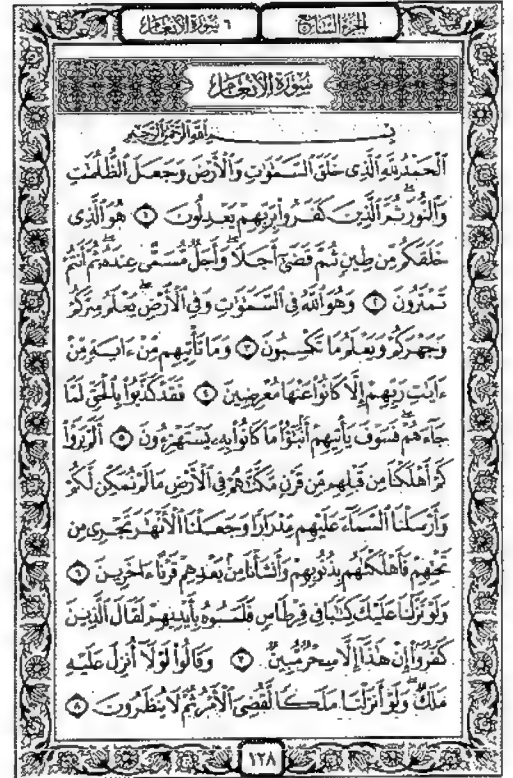 الجزء السابع
٦ سورة الأنعام
سورة الأنعام
بسم الله الرحمن الرحيم
الْحَمْدُ لِلَّهِ الَّذِي خَلَقَ السَّمَٰوَٰتِ وَالْأَرْضَ وَجَعَلَ الظُّلُمَٰتِ
وَالنُّورَ ۖ ثُمَّ الَّذِينَ كَفَرُوا بِرَبِّهِمْ يَعْدِلُونَ ١ هُوَ الَّذِي
خَلَقَكُم مِّن طِينٍ ثُمَّ قَضَىٰ أَجَلًا ۖ وَأَجَلٌ مُّسَمًّى عِندَهُ ۖ ثُمَّ أَنتُمْ
تَمْتَرُونَ ٢ وَهُوَ اللَّهُ فِي السَّمَٰوَٰتِ وَفِي الْأَرْضِ ۖ يَعْلَمُ سِرَّكُمْ
وَجَهْرَكُمْ وَيَعْلَمُ مَا تَكْسِبُونَ ٣ وَمَا تَأْتِيهِم مِّنْ ءَايَةٍ مِّنْ
ءَايَٰتِ رَبِّهِمْ إِلَّا كَانُوا عَنْهَا مُعْرِضِينَ ٤ فَقَدْ كَذَّبُوا بِالْحَقِّ لَمَّا
جَاءَهُمْ ۖ فَسَوْفَ يَأْتِيهِمْ أَنۢبَٰٓؤُا مَا كَانُوا بِهِ يَسْتَهْزِءُونَ ٥ أَلَمْ يَرَوْا
كَمْ أَهْلَكْنَا مِن قَبْلِهِم مِّن قَرْنٍ مَّكَّنَّٰهُمْ فِي الْأَرْضِ مَا لَمْ نُمَكِّن لَّكُمْ
وَأَرْسَلْنَا السَّمَاءَ عَلَيْهِم مِّدْرَارًا وَجَعَلْنَا الْأَنْهَٰرَ تَجْرِي مِن
تَحْتِهِمْ فَأَهْلَكْنَٰهُم بِذُنُوبِهِمْ وَأَنشَأْنَا مِنۢ بَعْدِهِمْ قَرْنًا ءَاخَرِينَ ٦
وَلَوْ نَزَّلْنَا عَلَيْكَ كِتَٰبًا فِي قِرْطَاسٍ فَلَمَسُوهُ بِأَيْدِيهِمْ لَقَالَ الَّذِينَ
كَفَرُوا إِنْ هَٰذَا إِلَّا سِحْرٌ مُّبِينٌ ٧ وَقَالُوا لَوْلَا أُنزِلَ عَلَيْهِ
مَلَكٌ ۖ وَلَوْ أَنزَلْنَا مَلَكًا لَّقُضِيَ الْأَمْرُ ثُمَّ لَا يُنظَرُونَ ٨
١٢٨